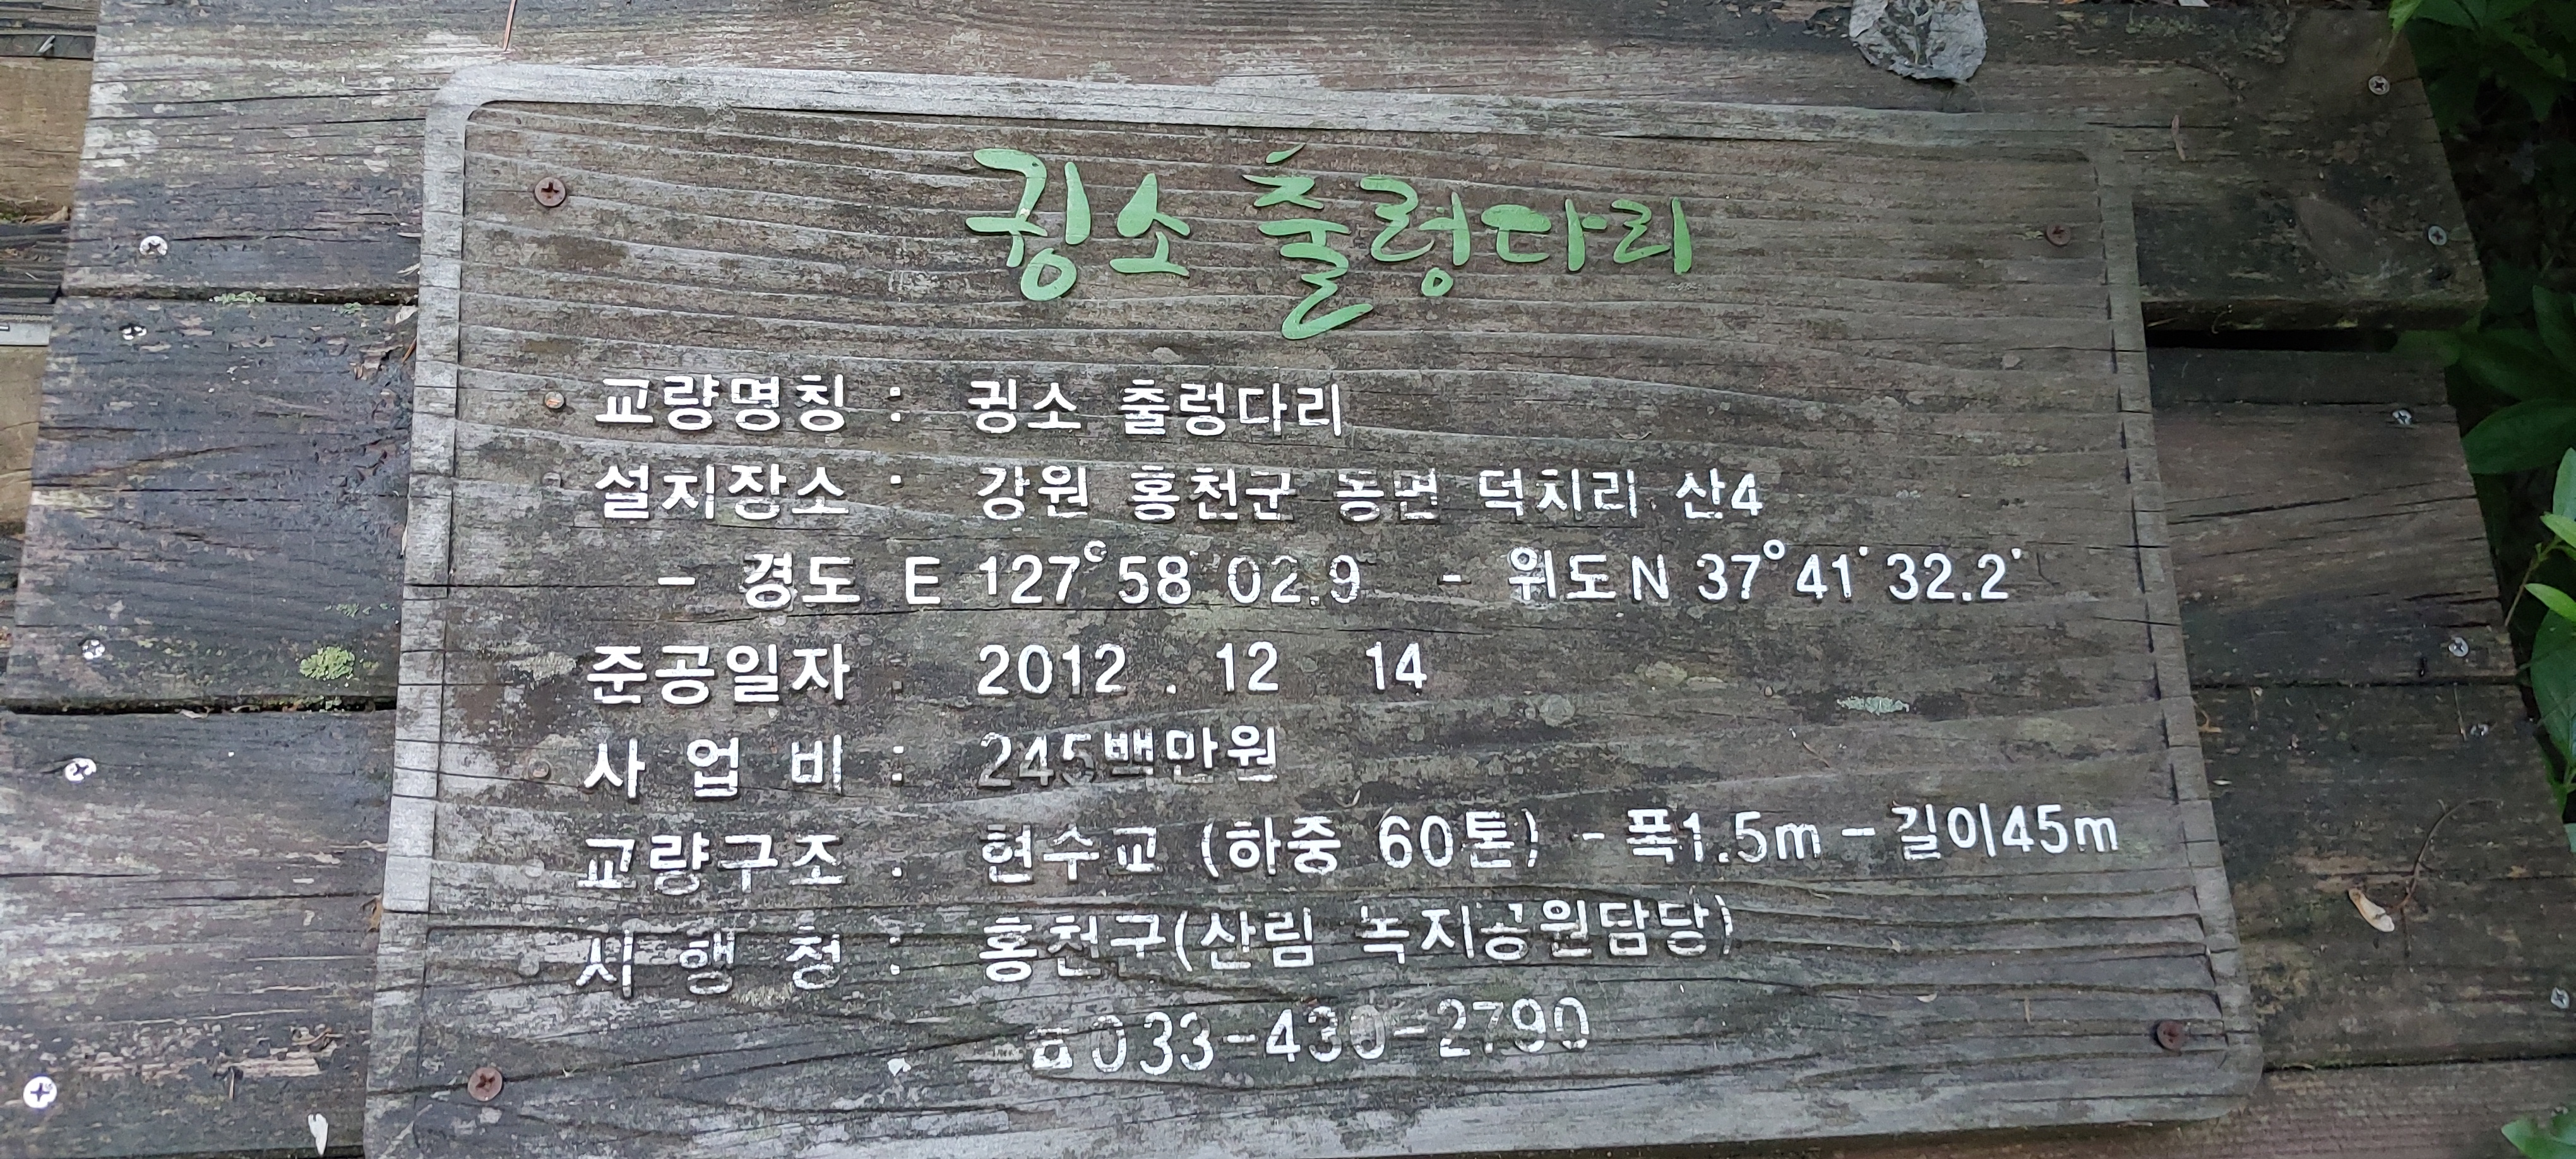 귕소 출렁다리
교량명칭 : 귕소 출렁다리
설치장소 : 강원 홍천군 동면 덕치리 산4
- 경도 E 127° 58 02.9 - 위도 N 37° 41' 32.2'
준공일자 : 2012 . 12 14
사 업 비 : 245백만원
교량구조 : 현수교 (하중 60톤) - 폭1.5m - 길이45m
시 행 청 : 홍천구(산림 녹지공원담당)
☎033-430-2790